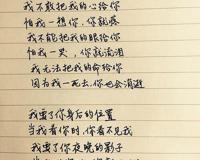 我不敢把我的心给你
怕我一想你，你就疼
我不能把我的眼给你
怕我一哭，你就流泪
我无法把我的命给你
因为我一死去，你也会消逝
我要了你身后的位置
当我看你时，你看不见我
我要了你夜晚的影子